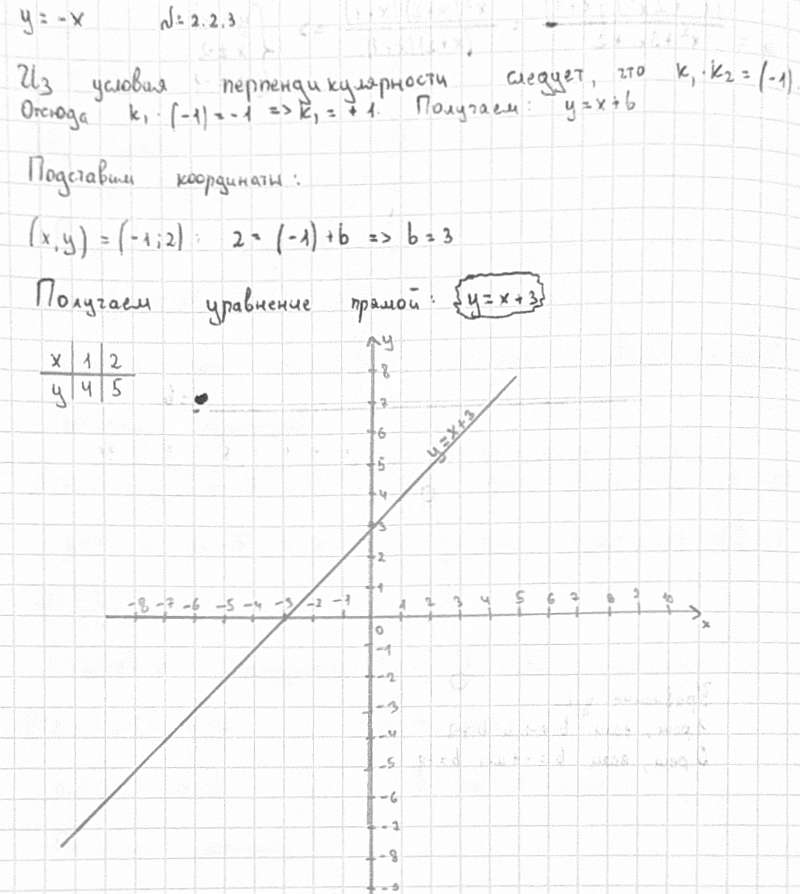 y = -x №2.2.3
Из условия перпендикулярности следует, что k₁·k₂ = (-1).
Отсюда k₁·(-1) = -1 => k₁ = +1. Получаем: y = x + b
Подставим координаты:
(x, y) = (-1; 2): 2 = (-1) + b => b = 3
Получаем уравнение прямой: y = x + 3
x 1 2
y 4 5
y
8
7
6
5
4
3
2
1
y = x + 3
-8 -7 -6 -5 -4 -3 -2 -1 1 2 3 4 5 6 7 8 9 10
x
0
-1
-2
-3
-4
-5
-6
-7
-8
-9